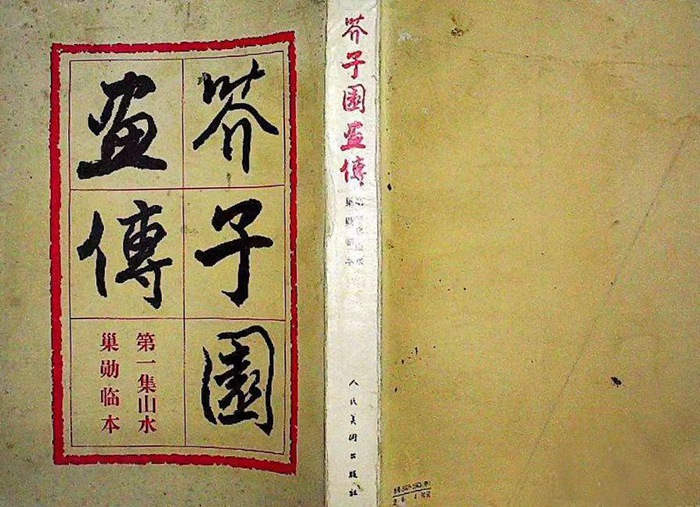 芥子園
畫傳
第一集山水
巢勋临本
芥子園畫傳
人民美術出版社